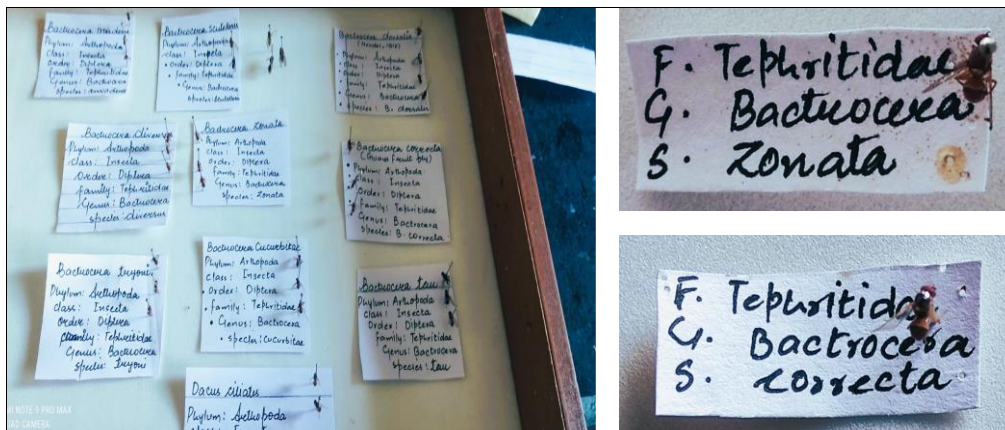 Bactrocera
Phylum: Arthopoda
class: Insecta
order: Diptera
family: Tephritidae
Genus: Bactrocera
species:
Bactrocera
Phylum: Arthopoda
class: Insecta
• order: Diptera
• family: Tephritidae
• Genus: Bactrocera
species:
Bactrocera dorsalis
(Hendel, 1912)
Phylum: Arthopoda
class: Insecta
order: Diptera
• family: Tephritidae
• Genus: Bactrocera
• species: B. dorsalis
Bactrocera diversus
Phylum: Arthopoda
class: Insecta
Order: Diptera
family: Tephritidae
Genus: Bactrocera
species: diversus
Bactrocera Zonata
Phylum: Arthopoda
class: Insecta
order: Diptera
family: Tephritidae
Genus: Bactrocera
species: Zonata
Bactrocera correcta
(Guava fruit fly)
Phylum: Arthopoda
• class: Insecta
• Order: Diptera
• family: Tephritidae
Genus: Bactrocera
species: B. correcta
Bactrocera tryoni
Phylum: Arthopoda
class: Insecta
order: Diptera
family: Tephritidae
Genus: Bactrocera
species: tryoni
Bactrocera Cucurbitae
Phylum: Arthopoda
class: Insecta
• order: Diptera
• family: Tephritidae
• Genus: Bactrocera
• species: cucurbitae
Bactrocera tau
Phylum: Arthopoda
class: Insecta
Order: Diptera
family: Tephritidae
Genus: Bactrocera
species: tau
Dacus ciliatus
Phylum: Arthopoda
NOTE 9 PRO MAX
AD CAMERA
F. Tephritidae
G. Bactrocera
S. Zonata
F. Tephritidae
G. Bactrocera
S. correcta